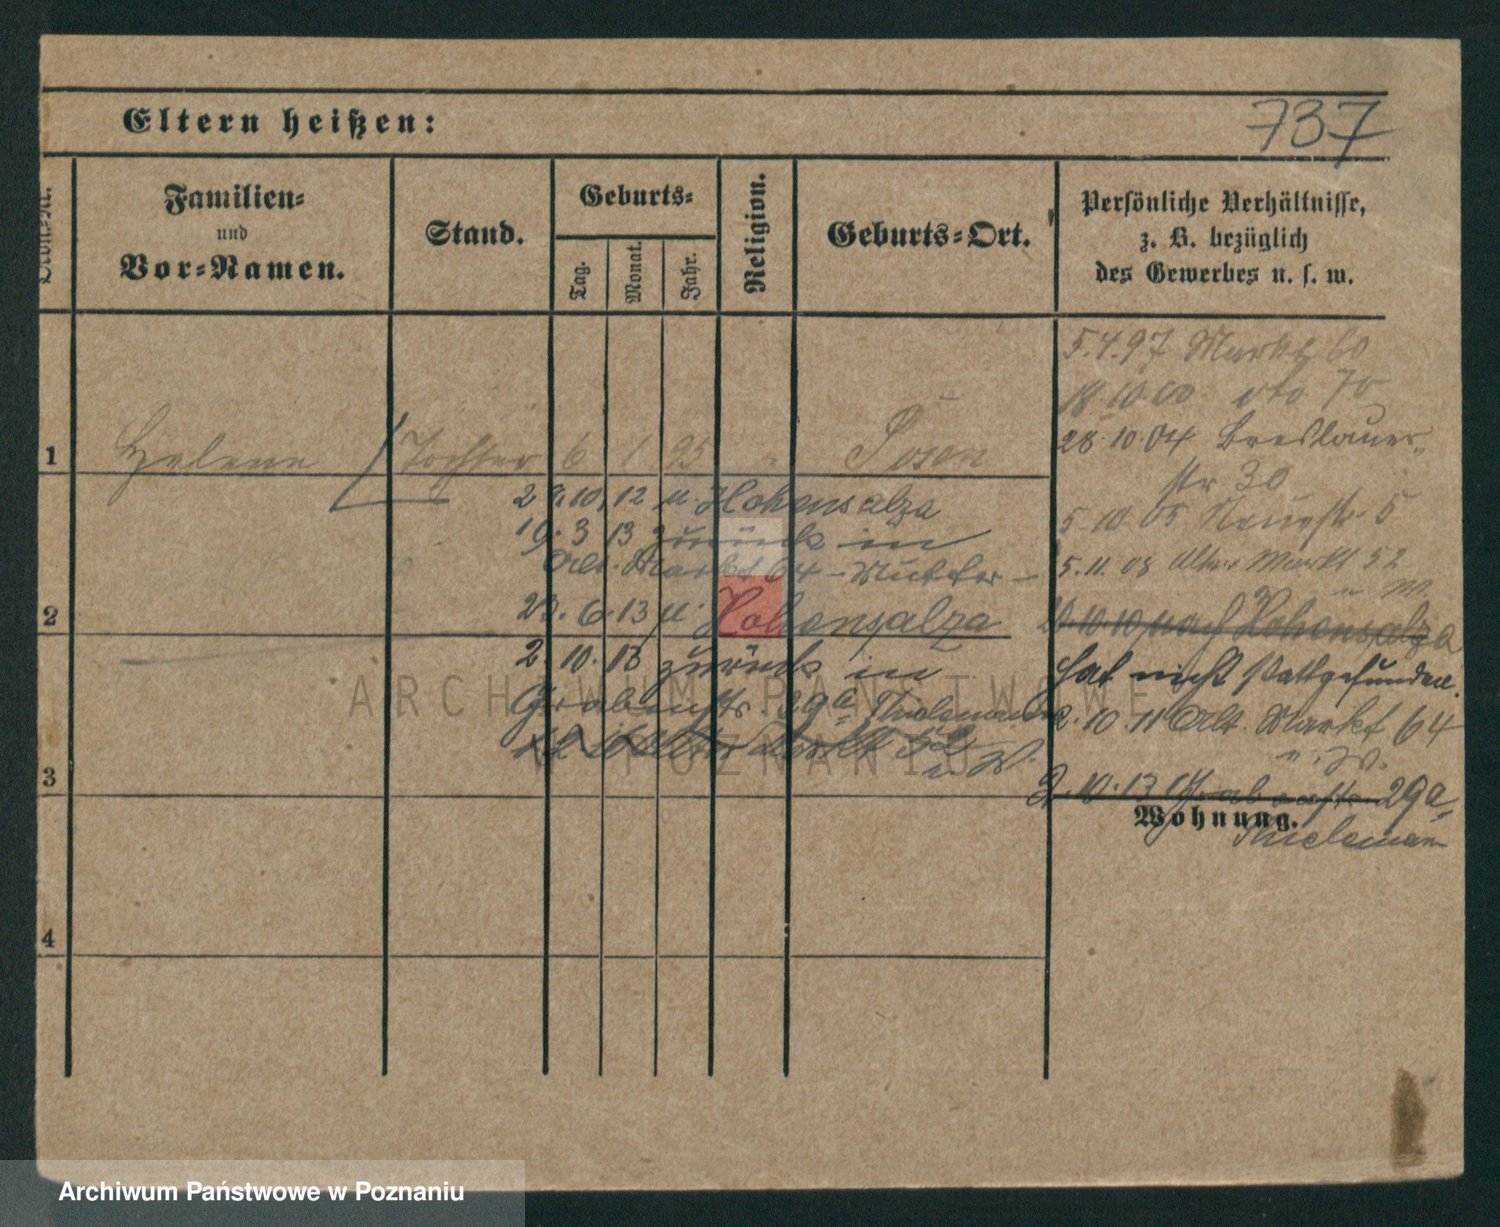 737
Eltern heißen:
Familien-
und
Vor-Namen.
Stand.
Geburts-
Tag.
Monat.
Jahr.
Religion.
Geburts-Ort.
Persönliche Verhältnisse,
z. B. bezüglich
des Gewerbes u. s. w.
1
Helene Tochter 6 1 95 " Posen
29.10.12 u. Hohensalza
19.3 13 zurück in
Alt. Markt 64 - Mutter -
2
23.6.13 u. Hohensalza
2.10.13 zurück in
Grabenstr. 29a Thielemann
u. W.
3
4
5.4.97 Markt 60
18 10 00 dto 70
28.10.04 Breslauer-
str 30
5.10.05 Neuestr. 5
5.11.08 Alter Markt 52
u W.
10.10 nach Hohensalza
hat nicht stattgefunden.
2.10.11 Alt. Markt 64
u. W.
2.10.13 Grabenstr. 29a,
Wohnung.
Thielemann
ARCHIWUM PAŃSTWOWE
W POZNANIU
Archiwum Państwowe w Poznaniu